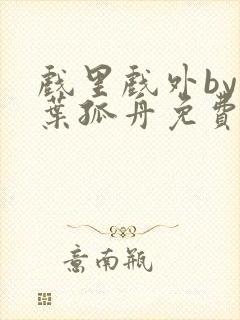 戏里戏外by一
葉孤舟免費
意南瓶